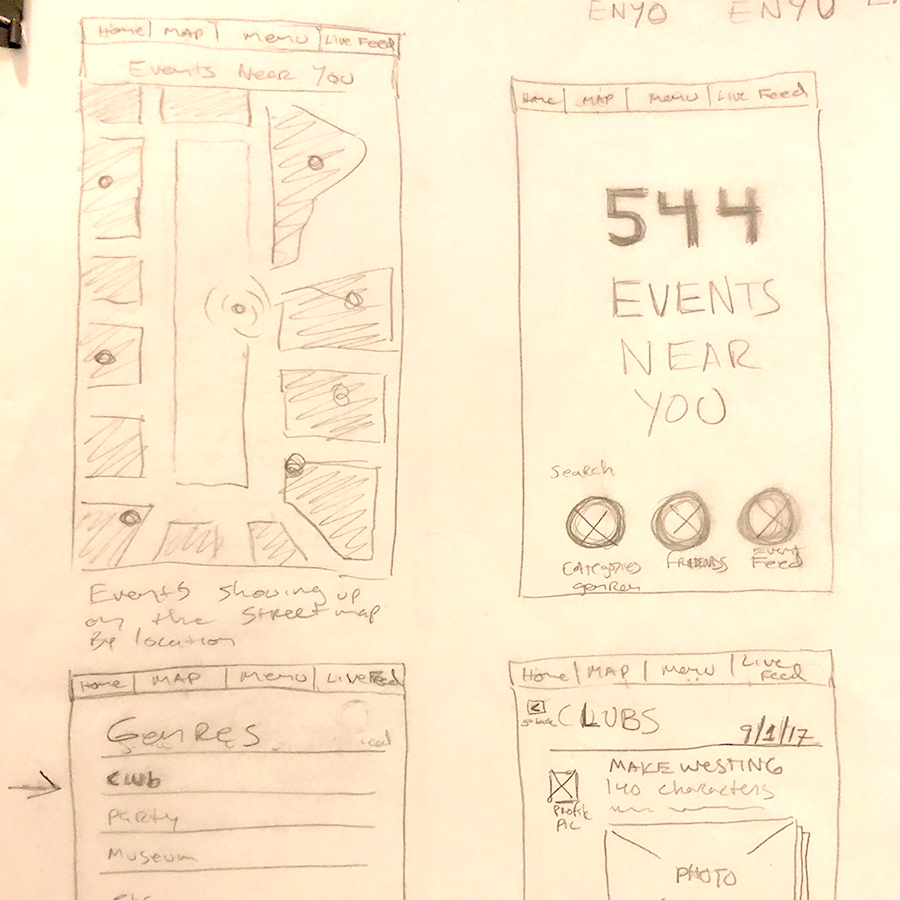 ENYO ENYU
Home MAP Menu Live Feed
Events Near You
Events showing up
on the street map
By location
Home MAP Menu Live Feed
544
EVENTS
NEAR
YOU
Search
Categories
genres
FRIENDS
EVENT
Feed
Home MAP Menu Live Feed
GENRES
Club
Party
Museum
Etc
Home MAP Menu Live
Feed
<
go back
CLUBS
9/1/17
MAKE WESTING
140 characters
Profile
Pic
PHOTO